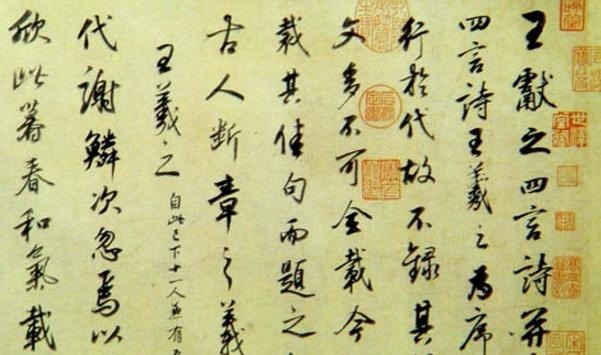 王獻之四言詩并
四言詩王羲之為序
行於代故不錄其
文多不可全載今
載其佳句而題之
古人斷章之義
王羲之 自此已下十一人兼有
代謝鱗次忽焉以
欣此暮春和氣載